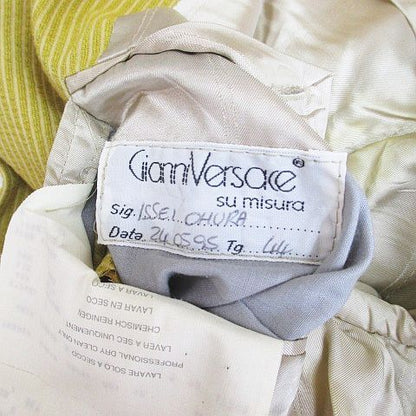 Gianni Versace®
su misura
Sig. ISSEI OHURA
Data 24.05.95 Tg. 44
LAVAR A SECO
LAVAR EN SECO
CHEMISCH REINIGEN
LAVER A SEC UNIQUEMENT
PROFESSIONAL DRY CLEAN ONLY
LAVARE SOLO A SECO